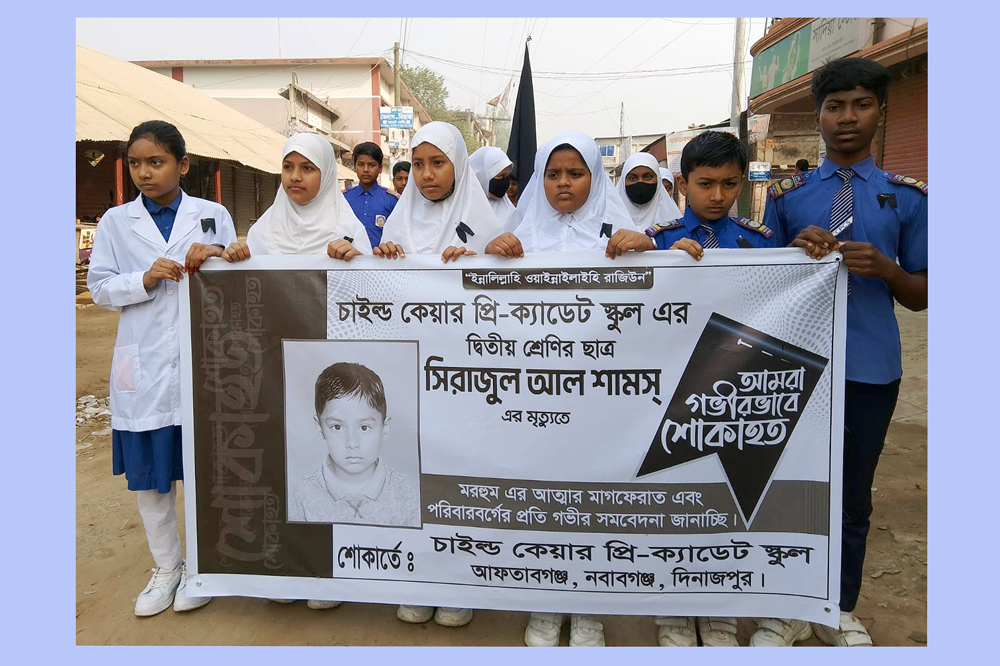 "ইন্নালিল্লাহি ওয়াইন্নাইলাইহি রাজিউন"
চাইল্ড কেয়ার প্রি-ক্যাডেট স্কুল এর
দ্বিতীয় শ্রেণির ছাত্র
সিরাজুল আল শামস্
এর মৃত্যুতে
আমরা
গভীরভাবে
শোকাহত
মরহুম এর আত্মার মাগফেরাত এবং
পরিবারবর্গের প্রতি গভীর সমবেদনা জানাচ্ছি।
শোকার্তে ঃ
চাইল্ড কেয়ার প্রি-ক্যাডেট স্কুল
আফতাবগঞ্জ, নবাবগঞ্জ, দিনাজপুর।
শোকাহত
শোকাহত
শোকাহত
শোকাহত